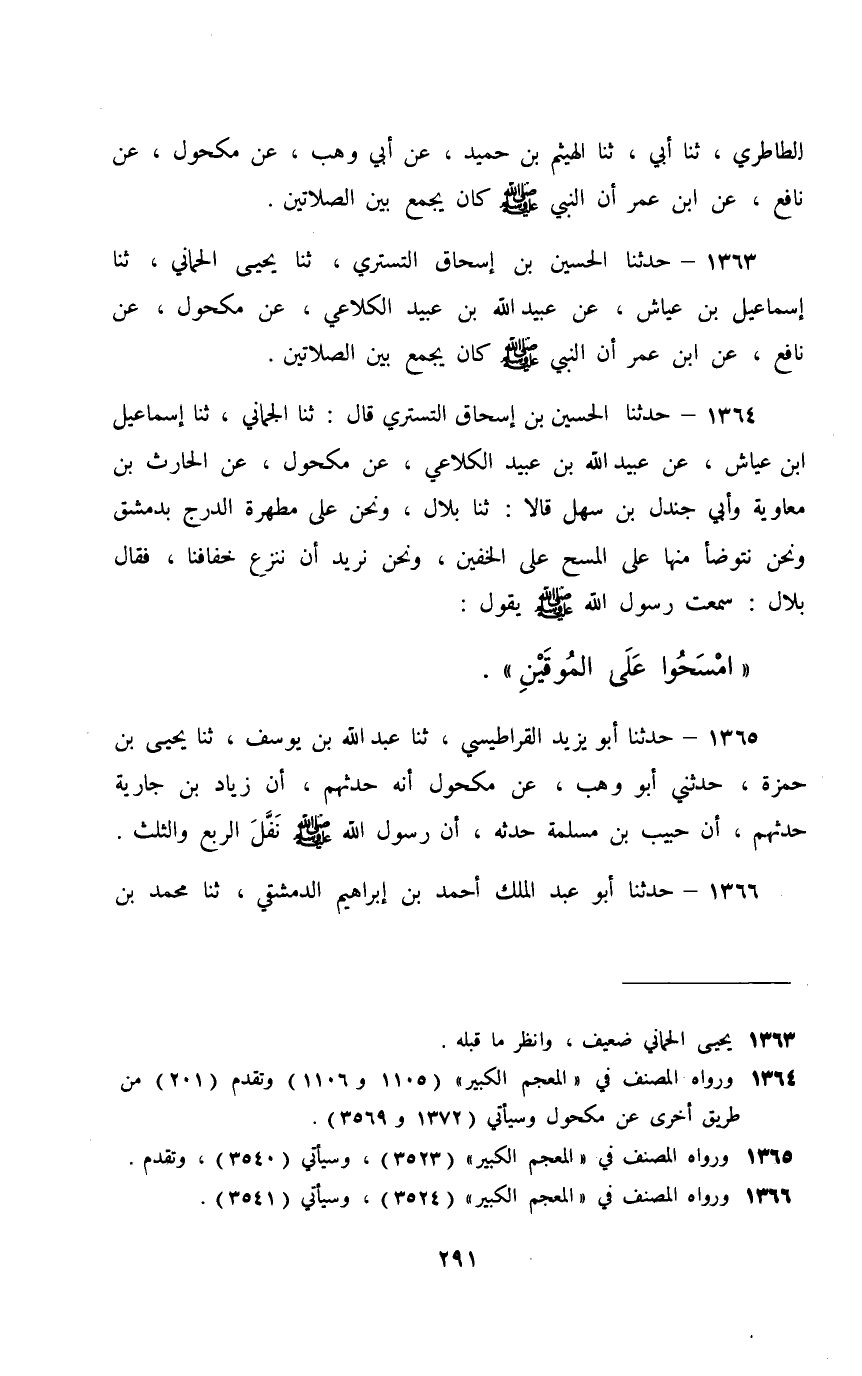 الطاطري ، ثنا أبي ، ثنا الهيثم بن حميد ، عن أبي وهب ، عن مكحول ، عن
نافع ، عن ابن عمر أن النبي ﷺ كان يجمع بين الصلاتين .
١٣٦٣ – حدثنا الحسين بن إسحاق التستري ، ثنا يحيى الحماني ، ثنا
إسماعيل بن عياش ، عن عبيد الله بن عبيد الكلاعي ، عن مكحول ، عن
نافع ، عن ابن عمر أن النبي ﷺ كان يجمع بين الصلاتين .
١٣٦٤ – حدثنا الحسين بن إسحاق التستري قال : ثنا الحماني ، ثنا إسماعيل
ابن عياش ، عن عبيد الله بن عبيد الكلاعي ، عن مكحول ، عن الحارث بن
معاوية وأبي جندل بن سهل قالا : ثنا بلال ، ونحن على مطهرة الدرج بدمشق
ونحن نتوضأ منها على المسح على الخفين ، ونحن نريد أن ننزع خفافنا ، فقال
بلال : سمعت رسول الله ﷺ يقول :
« امْسَحُوا عَلَى المُوقَيْنِ » .
١٣٦٥ – حدثنا أبو يزيد القراطيسي ، ثنا عبد الله بن يوسف ، ثنا يحيى بن
حمزة ، حدثني أبو وهب ، عن مكحول أنه حدثهم ، أن زياد بن جارية
حدثهم ، أن حبيب بن مسلمة حدثه ، أن رسول الله ﷺ نَفَّلَ الربع والثلث .
١٣٦٦ – حدثنا أبو عبد الملك أحمد بن إبراهيم الدمشقي ، ثنا محمد بن
١٣٦٣ يحيى الحماني ضعيف ، وانظر ما قبله .
١٣٦٤ ورواه المصنف في « المعجم الكبير » ( ١١٠٥ و ١١٠٦ ) وتقدم ( ٢٠١ ) من
طريق أخرى عن مكحول وسيأتي ( ١٣٧٢ و ٣٥٦٩ ) .
١٣٦٥ ورواه المصنف في « المعجم الكبير » ( ٣٥٢٣ ) ، وسيأتي ( ٣٥٤٠ ) ، وتقدم .
١٣٦٦ ورواه المصنف في « المعجم الكبير » ( ٣٥٢٤ ) ، وسيأتي ( ٣٥٤١ ) .
٢٩١